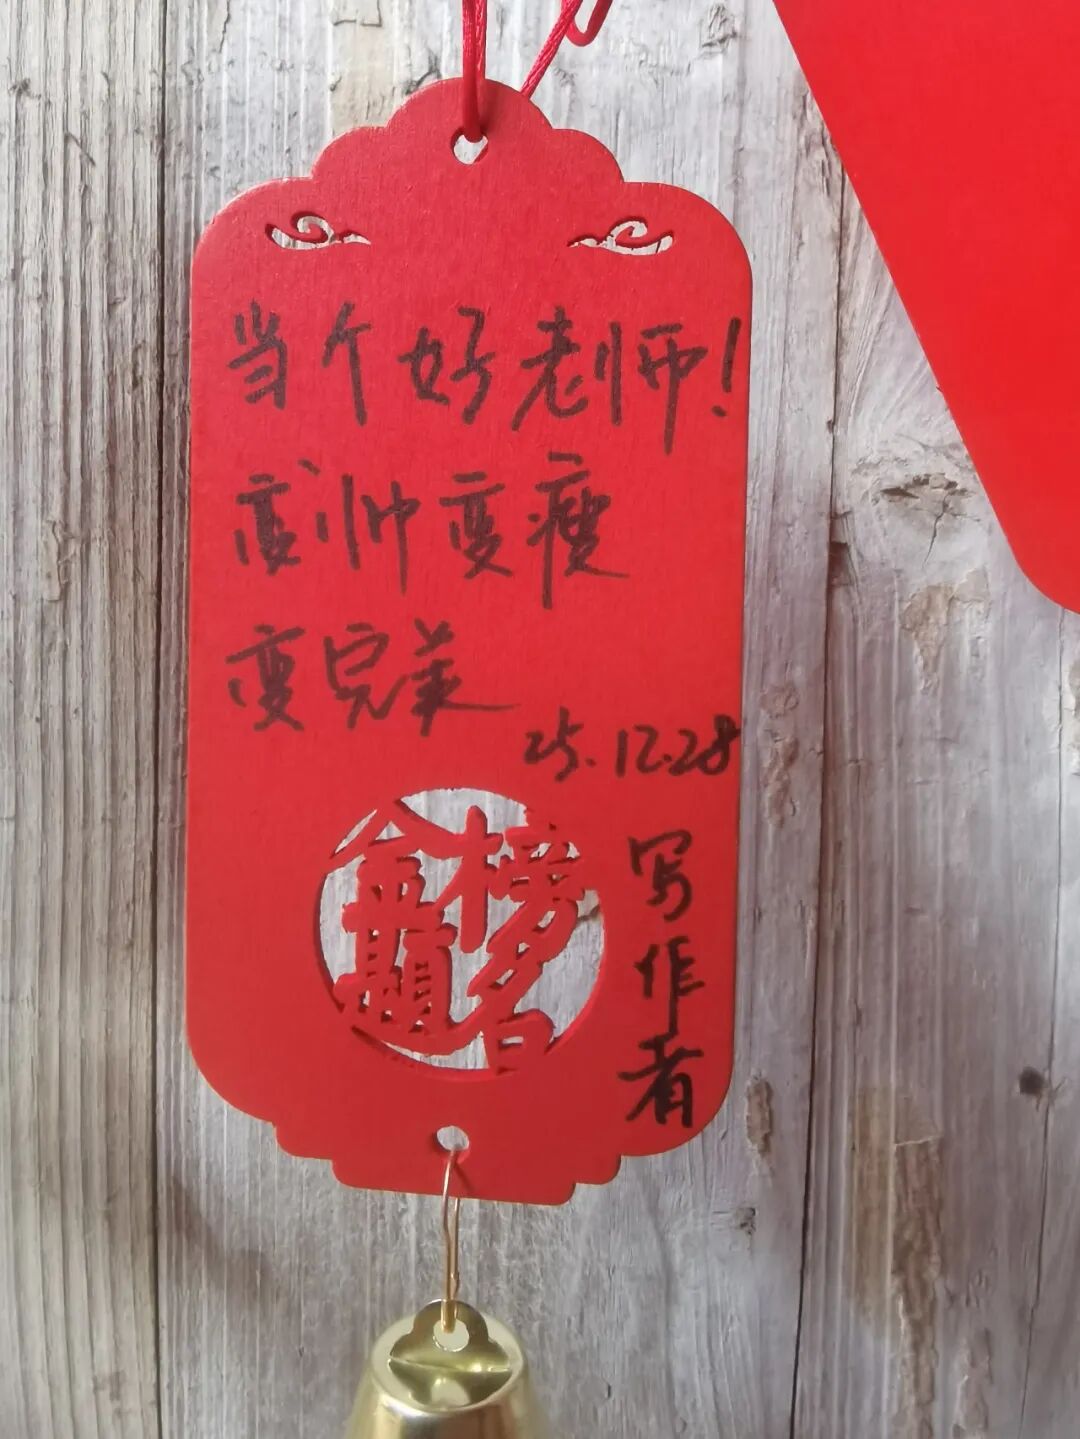 当个好老师！
变帅变瘦
变完美
25.12.28
金榜题名
写作者